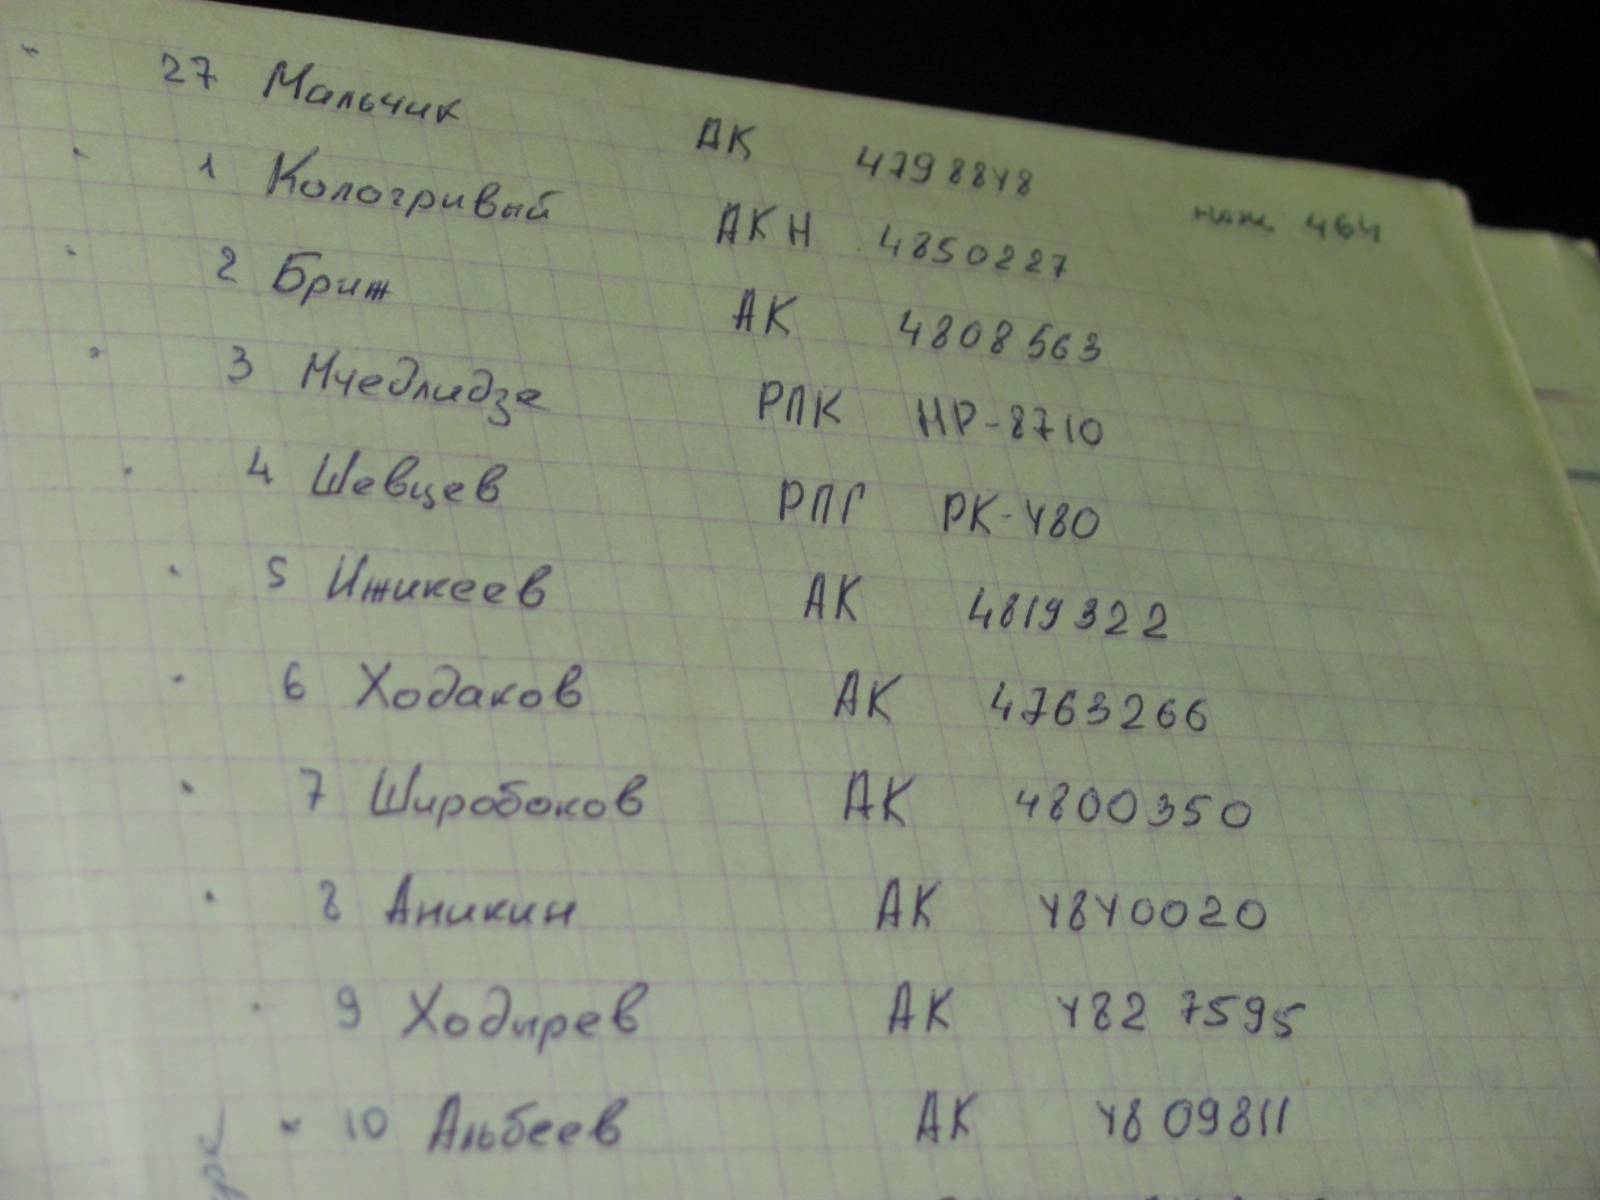 27 Мальчик АК 4798848
1 Кологривый АКН 4850227 нож 464
2 Бриж АК 4808563
3 Мчедлидзе РПК НР-8710
4 Шевцев РПГ РК-480
5 Ижикеев АК 4819322
6 Ходаков АК 4763266
7 Широбоков АК 4800350
8 Аникин АК 4840020
9 Ходырев АК 482 7595
10 Альбеев АК 4809811